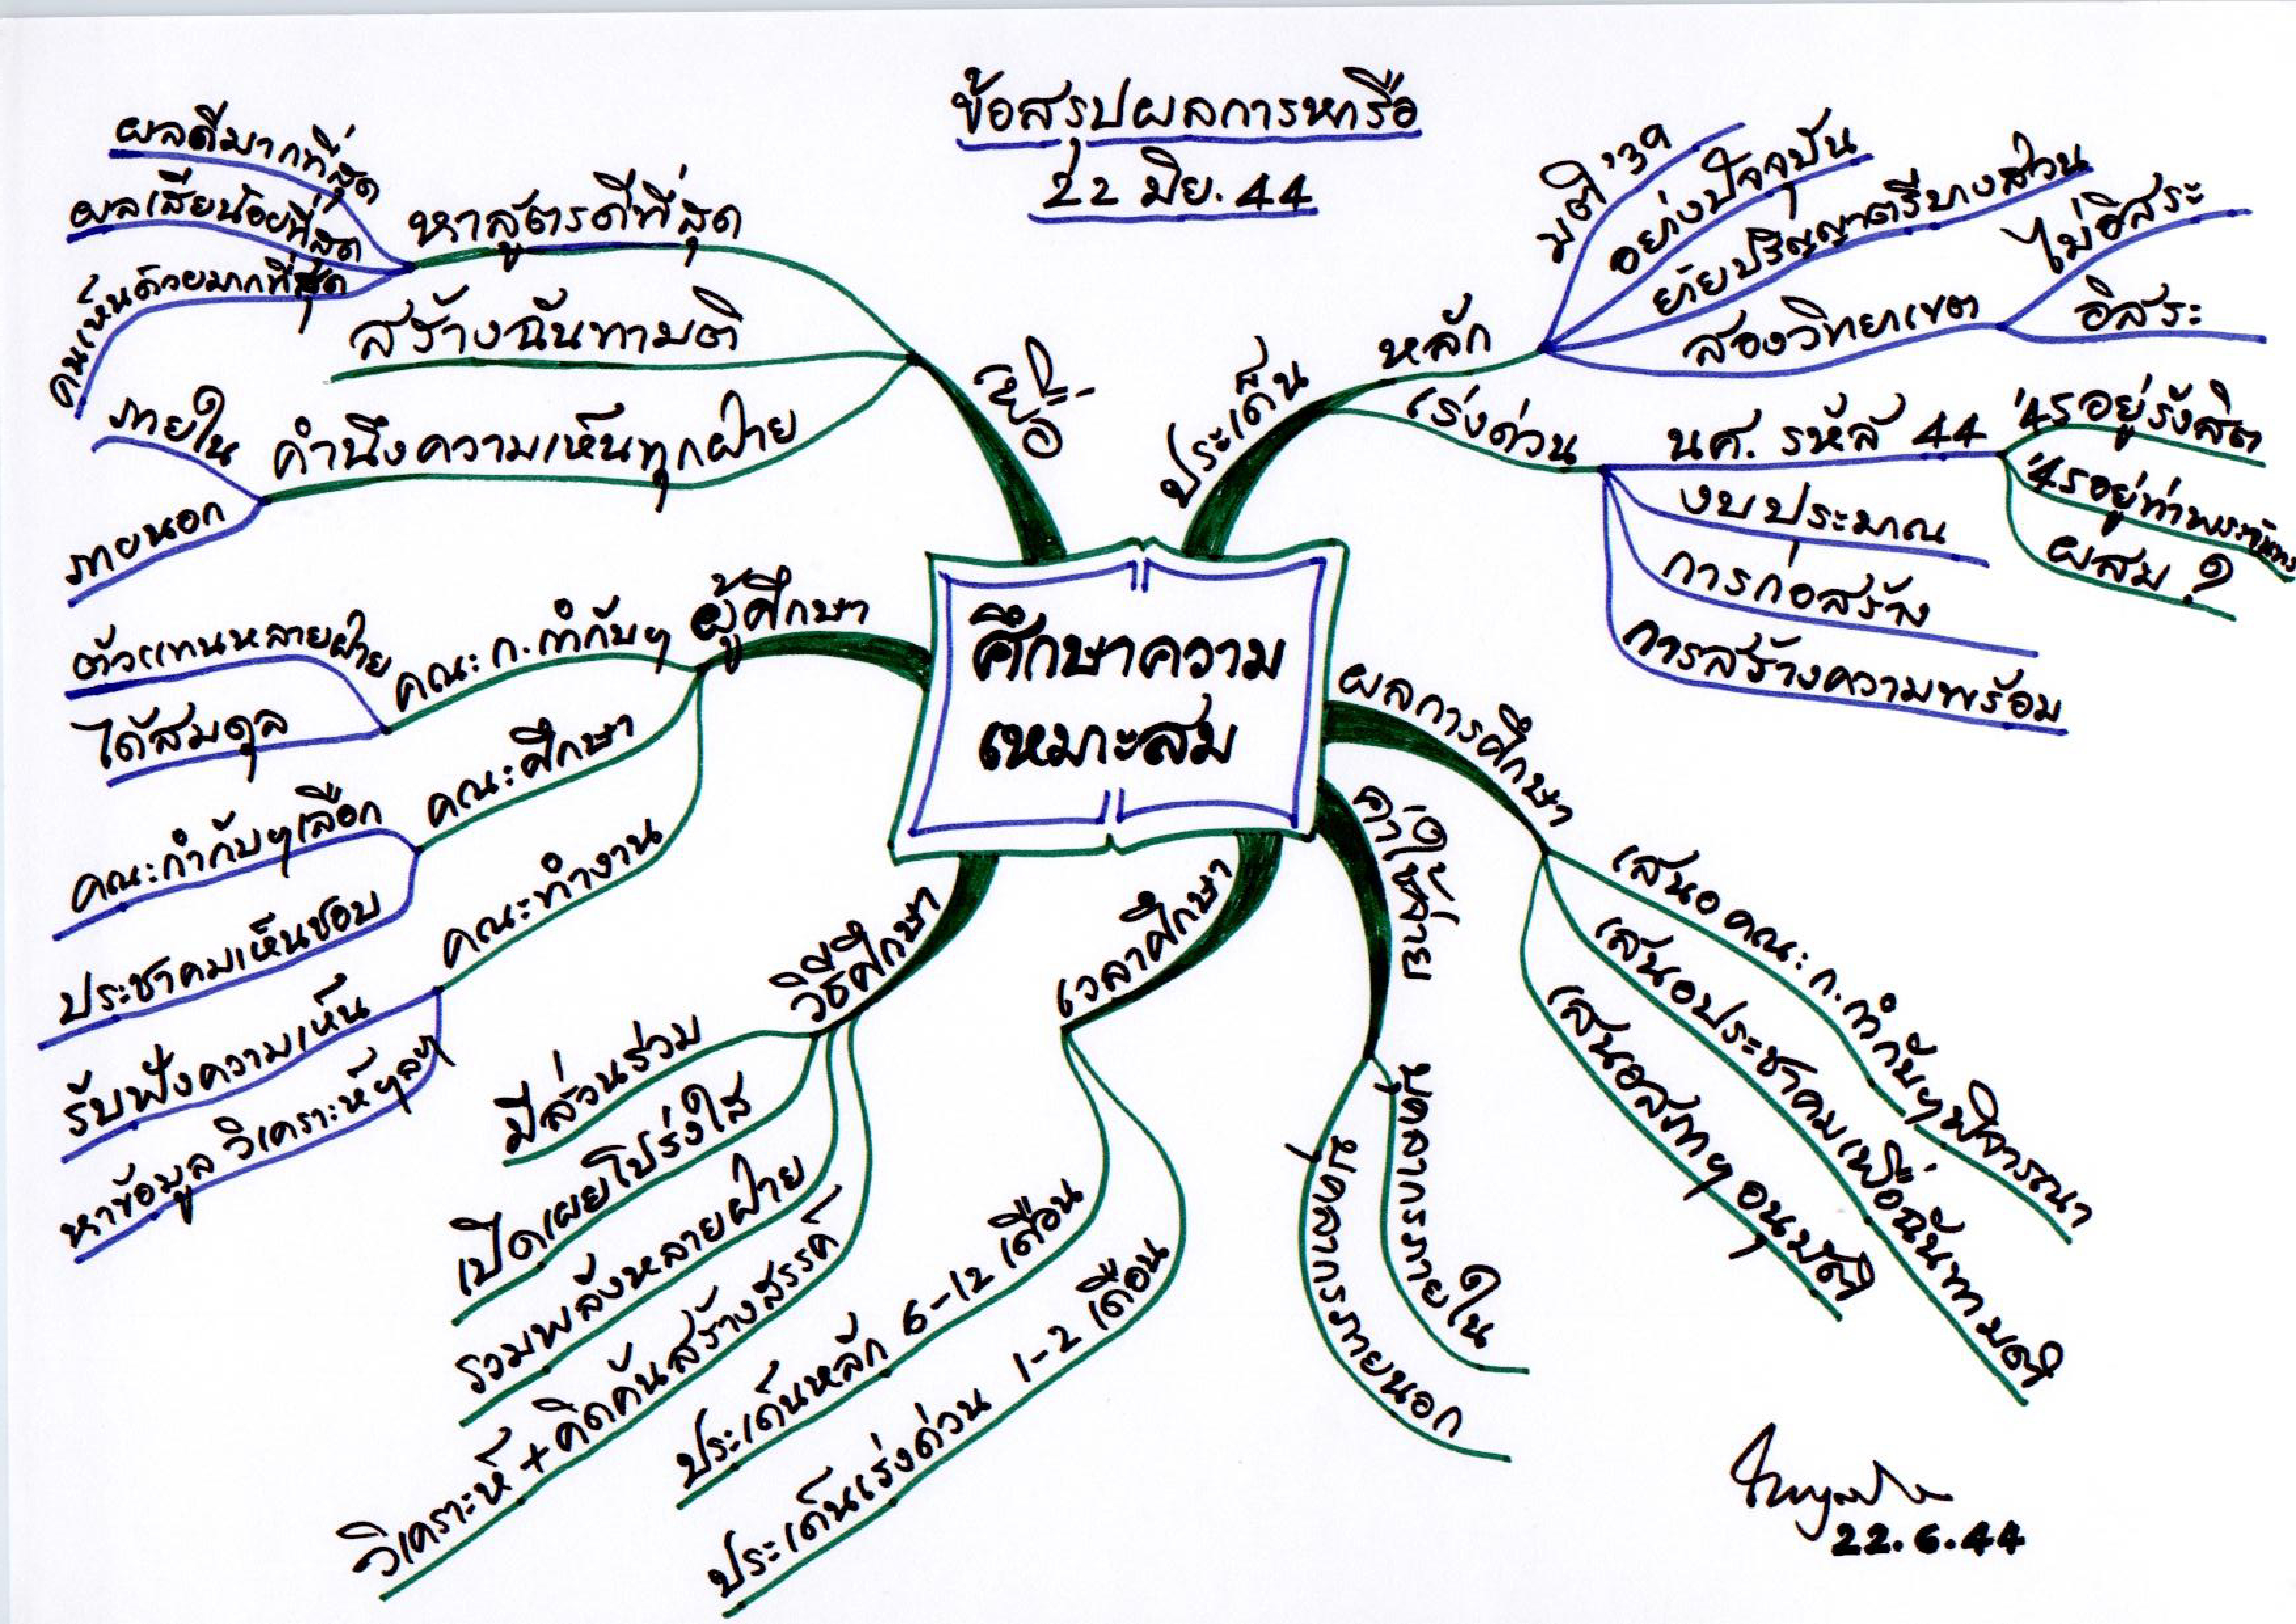 ข้อสรุปผลการหารือ
22 มิย. 44
ศึกษาความ
เหมาะสม
ประเด็น
หลัก
มติ '39
อย่างปัจจุบัน
ย้ายปริญญาตรีบางส่วน
สองวิทยาเขต
ไม่อิสระ
อิสระ
เร่งด่วน
นศ. รหัส 44
'45 อยู่รังสิต
'45 อยู่ท่าพระจันทร์
ผสม ?
งบประมาณ
การก่อสร้าง
การสร้างความพร้อม
ผลการศึกษา
เสนอคณะก.กำกับฯพิจารณา
เสนอประชาคมเพื่อฉันทามติ
เสนอสภาฯอนุมัติ
ค่าใช้จ่าย
บุคลากรภายใน
บุคลากรภายนอก
เวลาศึกษา
ประเด็นหลัก 6-12 เดือน
ประเด็นเร่งด่วน 1-2 เดือน
วิธีศึกษา
มีส่วนร่วม
เปิดเผยโปร่งใส
รวมพลังหลายฝ่าย
วิเคราะห์ + คิดค้นสร้างสรรค์
ผู้ศึกษา
คณะก.กำกับฯ
ตัวแทนหลายฝ่าย
ได้สมดุล
คณะศึกษา
คณะกำกับฯเลือก
ประชาคมเห็นชอบ
คณะทำงาน
รับฟังความเห็น
หาข้อมูล วิเคราะห์ฯลฯ
เพื่อ
หาสูตรดีที่สุด
ผลดีมากที่สุด
ผลเสียน้อยที่สุด
คนเห็นด้วยมากที่สุด
สร้างฉันทามติ
คำนึงความเห็นทุกฝ่าย
ภายใน
ภายนอก
22.6.44